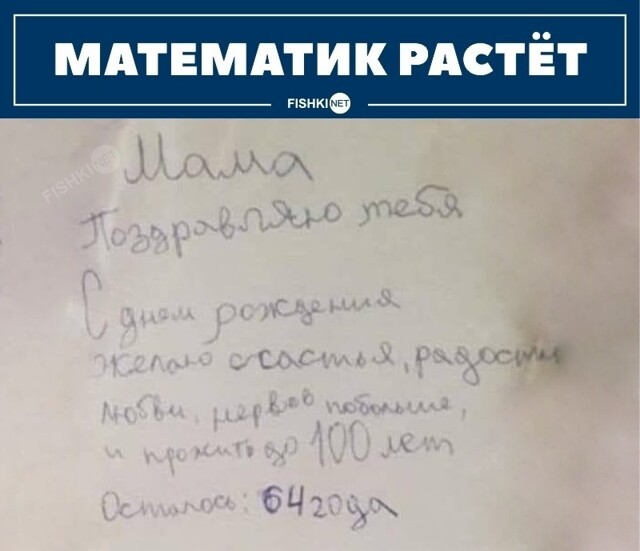 МАТЕМАТИК РАСТЁТ
FISHKI NET
FISHKI NET
Мама
Поздравляю тебя
С днем рождения
желаю счастья, радости
любви, нервов побольше,
и прожить до 100 лет
Осталось: 64 года